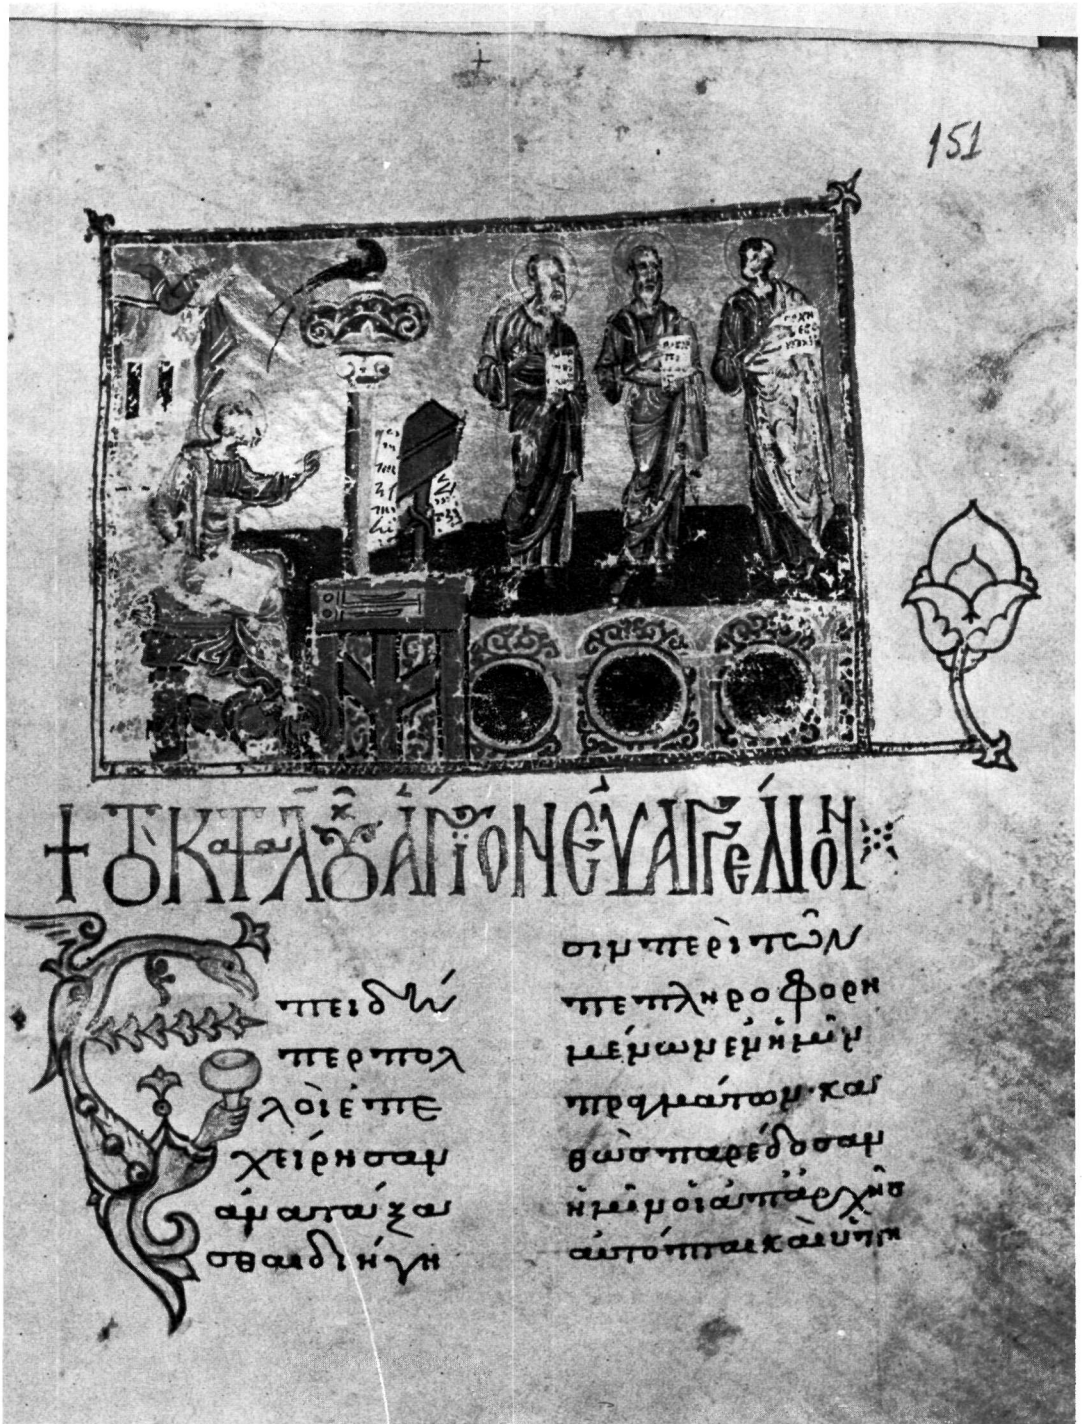 151
+ ΤΟ ΚΑΤΑ ΛΟΥΚ ΑΓΙΟΝ ΕΥΑΓΓΕΛΙΟΝ
πειδή
περ πολ
λοὶ ἐπε
χείρησαν
ἀνατάξα
σθαι διήγη
σιν περὶ τῶν
πεπληροφορη
μένων ἐν ἡμῖν
πραγμάτων· κα
θὼς παρέδοσαν
ἡμῖν οἱ ἀπ' ἀρχῆσ
αὐτόπται καὶ ὑπη